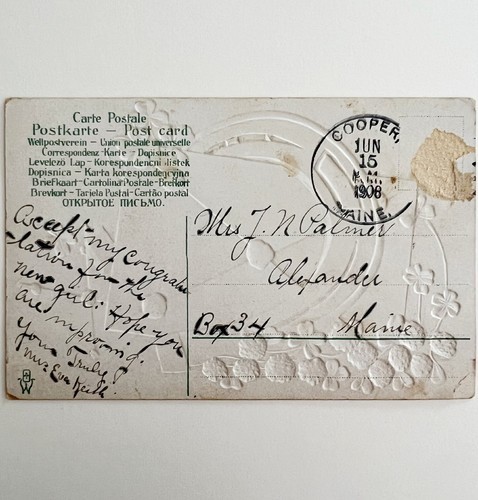 Carte Postale
Postkarte – Post card
Weltpostverein – Union postale universelle
Correspondenz-Karte – Dopisnice
Levelező Lap – Korespondencni listek
Dopisnica – Karta korespondencyjna
Briefkaart – Cartolina Postale – Brefkort
Brevkort – Tarjeta Postal – Cartão postal
ОТКРЫТОЕ ПИСЬМО.
COOPER,
JUN
15
A.M.
1908
MAINE.
Accept my congratu
lation for the
new girl. Hope you
are improving
Yours Truly
Mrs J. N. Palmer
Alexander
Box 34 Maine